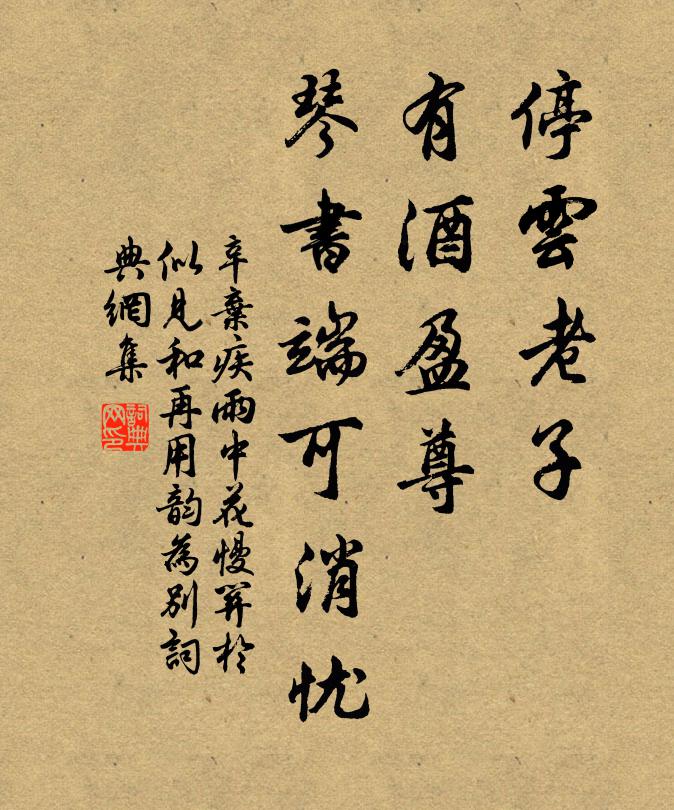 停雲老子
有酒盈尊
琴書端可消忧
辛棄疾雨中花慢
似見和再用韵為別詞
典網集
詞典网印